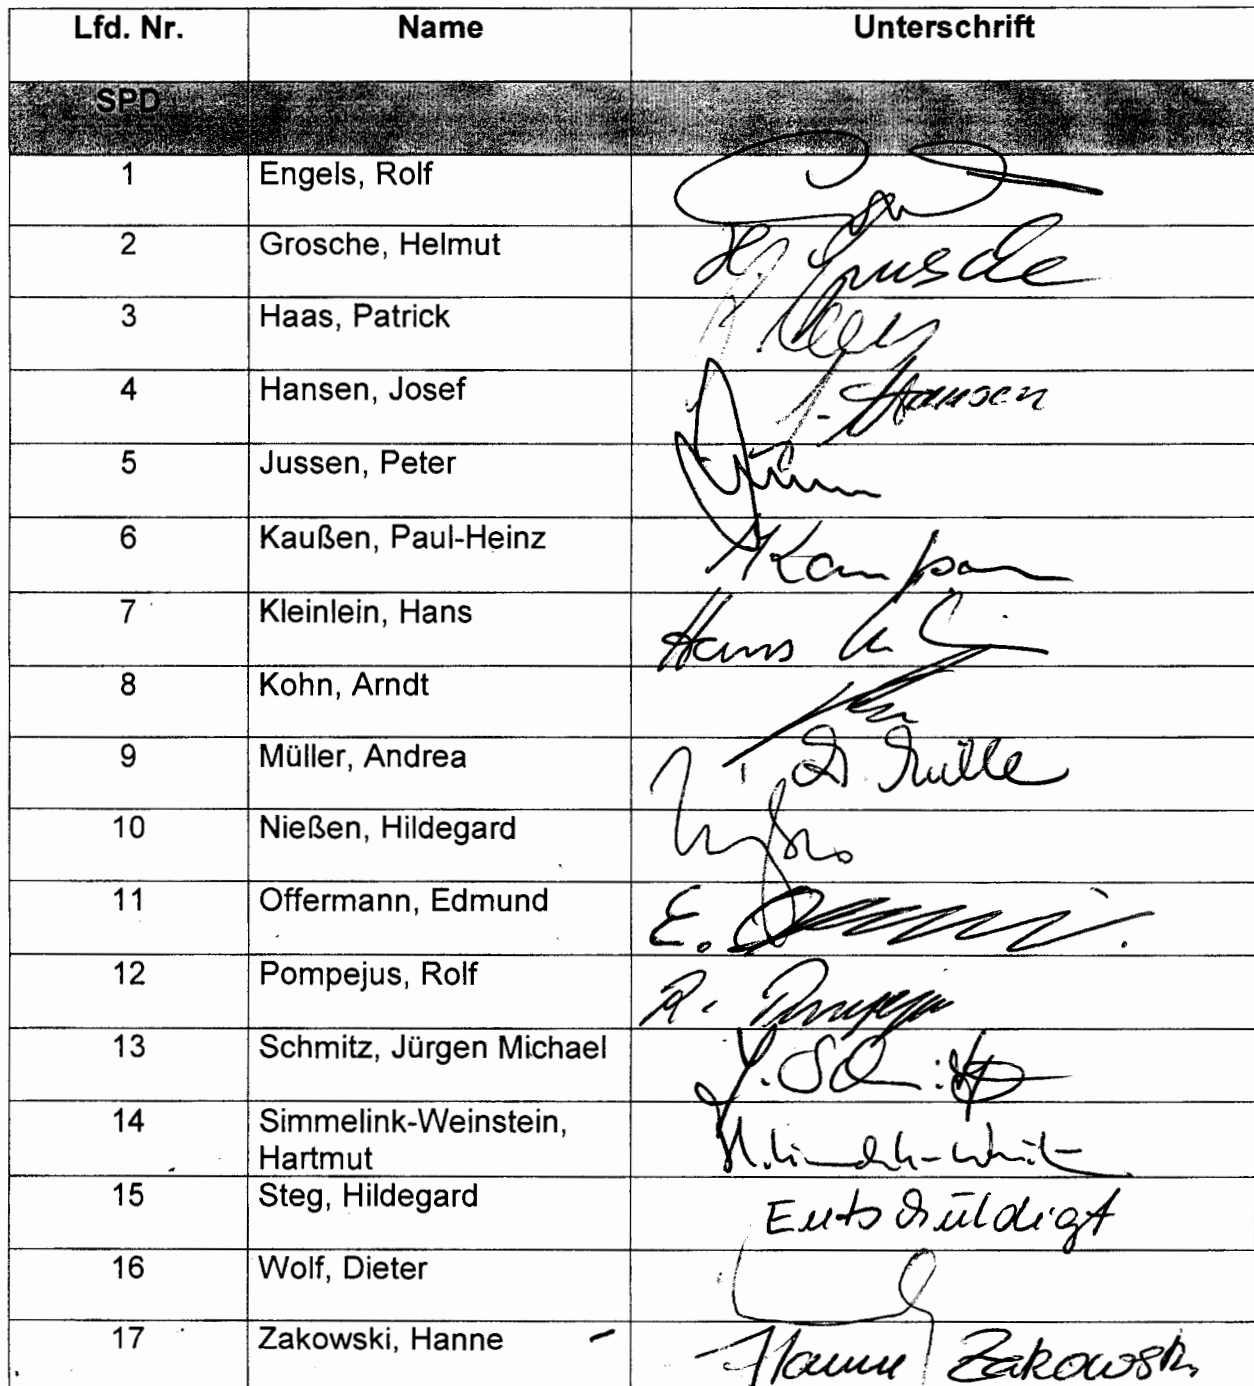 Lfd. Nr. Name Unterschrift
SPD
1 Engels, Rolf
2 Grosche, Helmut H. Grosche
3 Haas, Patrick
4 Hansen, Josef J. Hansen
5 Jussen, Peter
6 Kaußen, Paul-Heinz
7 Kleinlein, Hans Hans
8 Kohn, Arndt
9 Müller, Andrea A. Müller
10 Nießen, Hildegard
11 Offermann, Edmund E.
12 Pompejus, Rolf R.
13 Schmitz, Jürgen Michael J. Schmitz
14 Simmelink-Weinstein,
Hartmut
15 Steg, Hildegard Entschuldigt
16 Wolf, Dieter
17 Zakowski, Hanne Hanne Zakowski